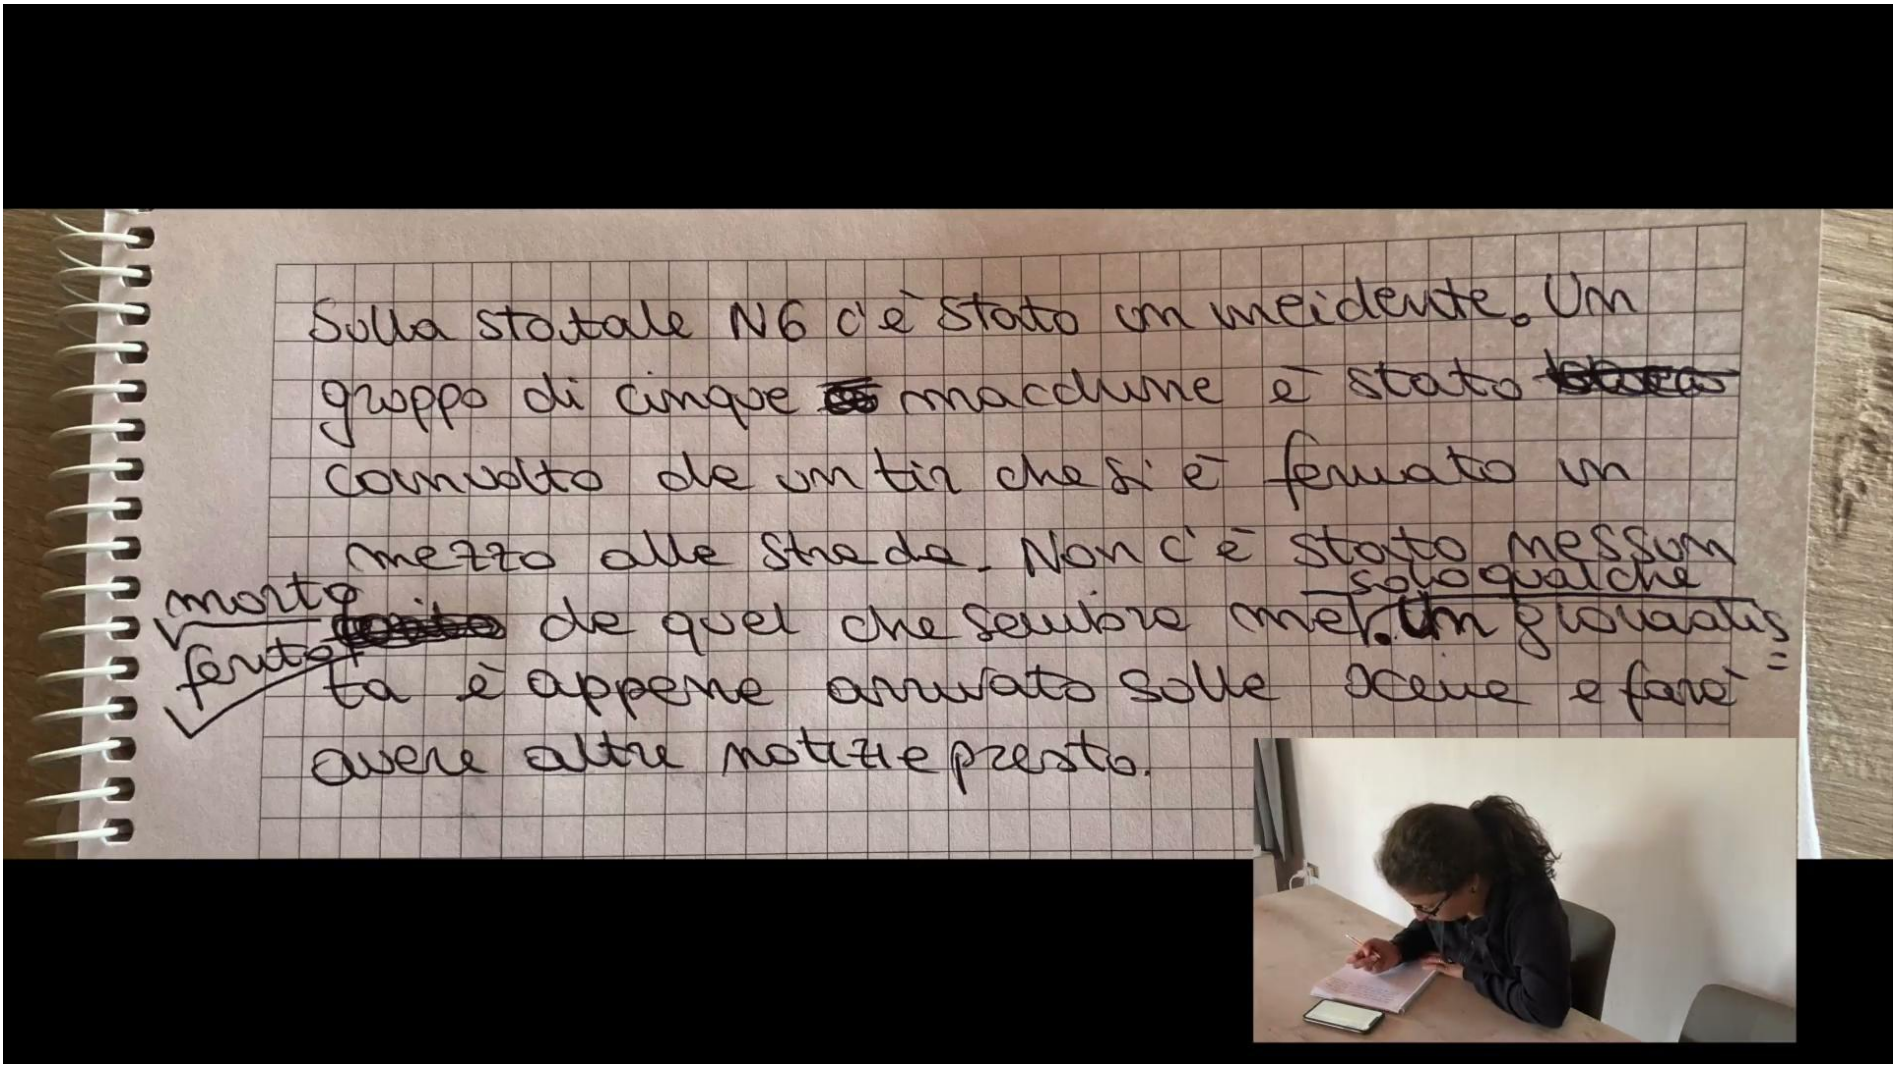 Sulla statale N6 c'è stato un incidente. Un
gruppo di cinque macchine è stato
coinvolto da un tir che si è fermato in
mezzo alla strada. Non c'è stato nessun
solo qualche
morto
da quel che sembra ma. Un giornalis=
ferito
ta è appena arrivato sulla scena e farà
avere altre notizie presto.